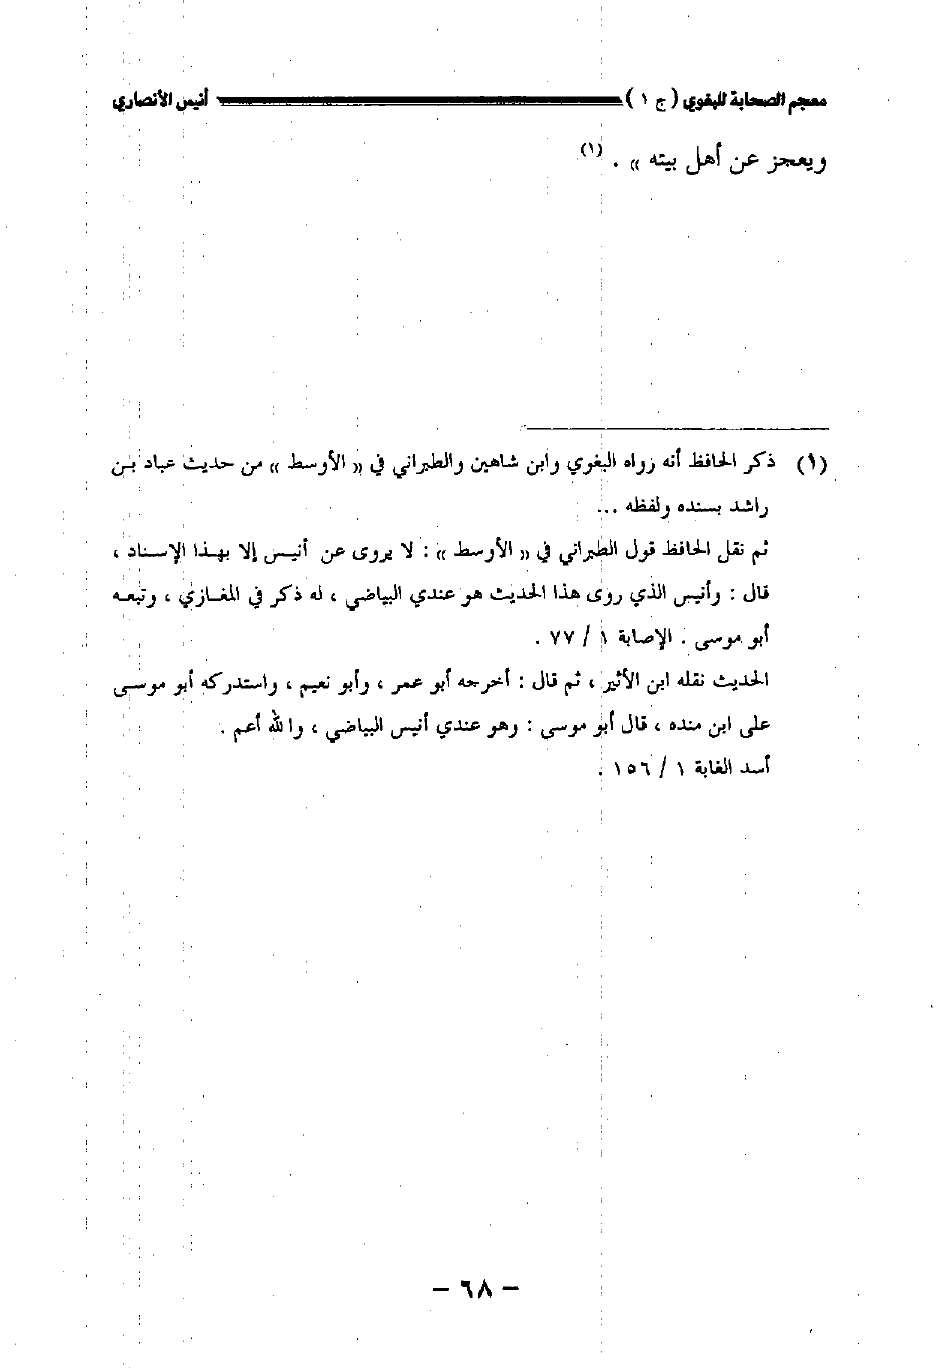 معجم الصحابة للبغوي ( ج ١ ) أنيس الأنصاري
ويعجز عن أهل بيته » . (١)
(١) ذكر الحافظ أنه رواه البغوي وابن شاهين والطبراني في « الأوسط » من حديث عباد بن
راشد بسنده ولفظه ...
ثم نقل الحافظ قول الطبراني في « الأوسط » : لا يروى عن أنيس إلا بهذا الإسناد ،
قال : وأنيس الذي روى هذا الحديث هو عندي البياضي ، له ذكر في المغازي ، وتبعه
أبو موسى . الإصابة ١ / ٧٧ .
الحديث نقله ابن الأثير ، ثم قال : أخرجه أبو عمر ، وأبو نعيم ، واستدركه أبو موسى
على ابن منده ، قال أبو موسى : وهو عندي أنيس البياضي ، والله أعم .
أسد الغابة ١ / ١٥٦ .
- ٦٨ -